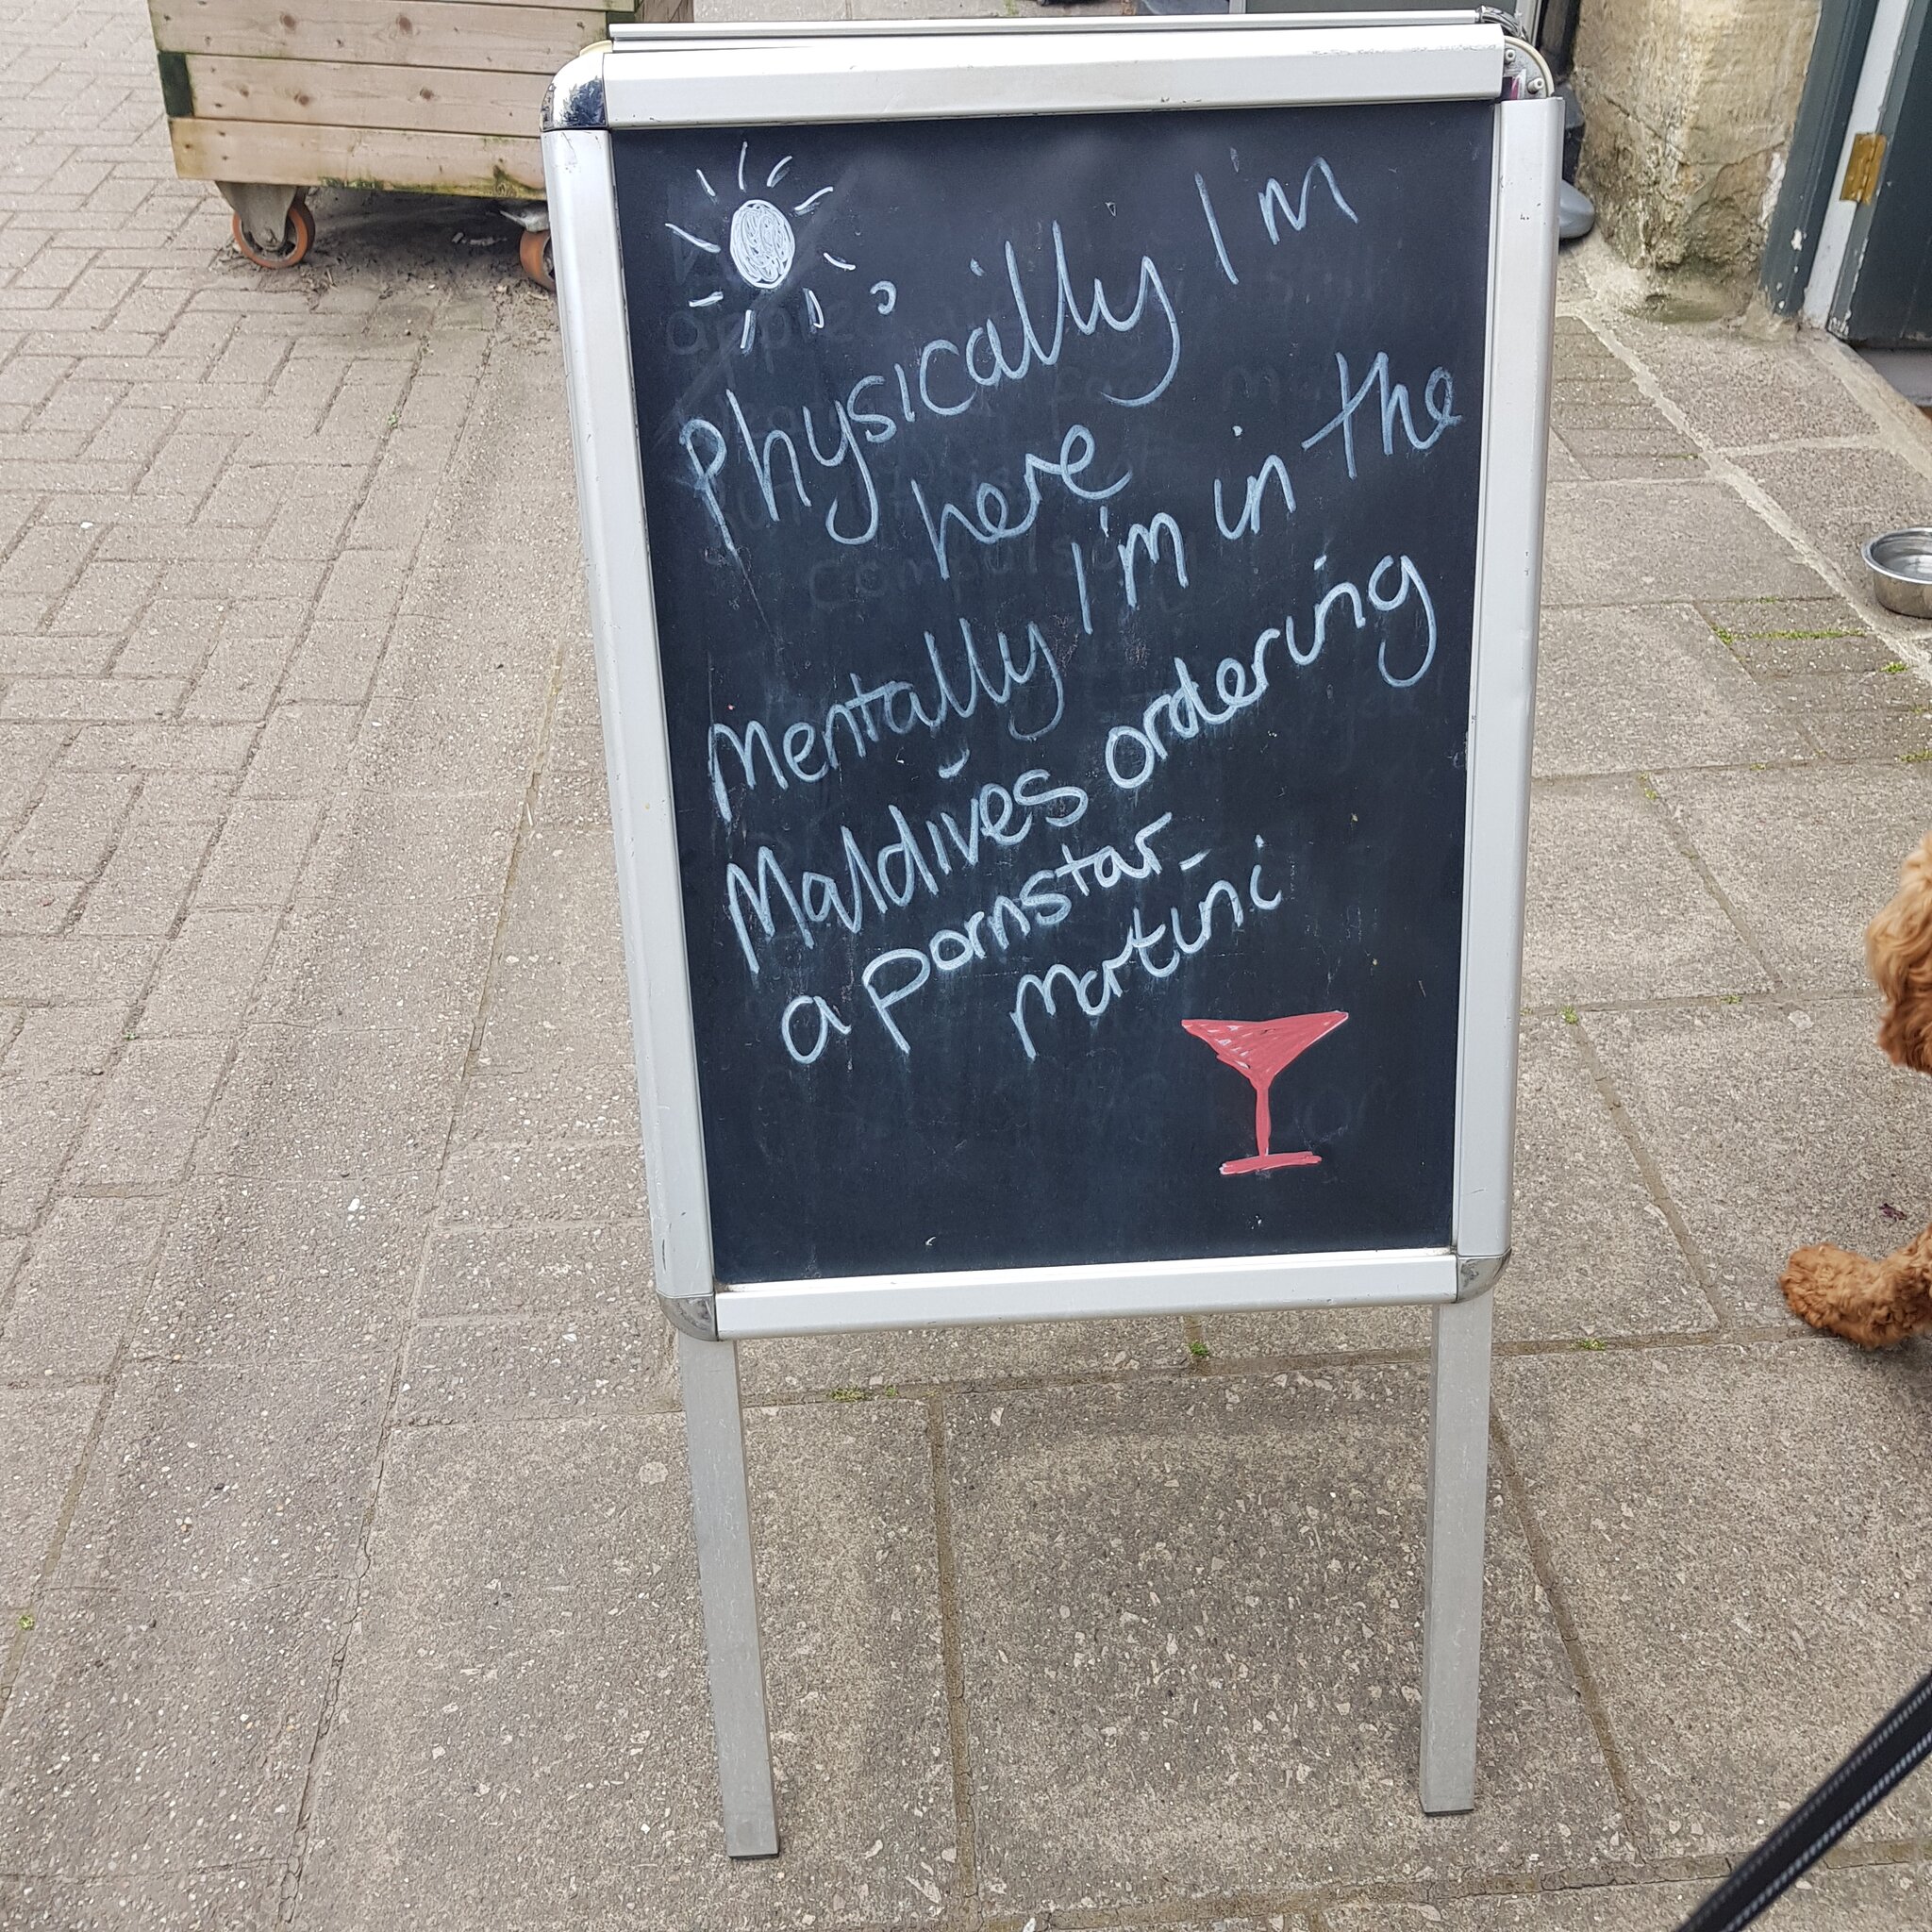 Physically I'm
here
Mentally I'm in the
Maldives ordering
a Pornstar
martini